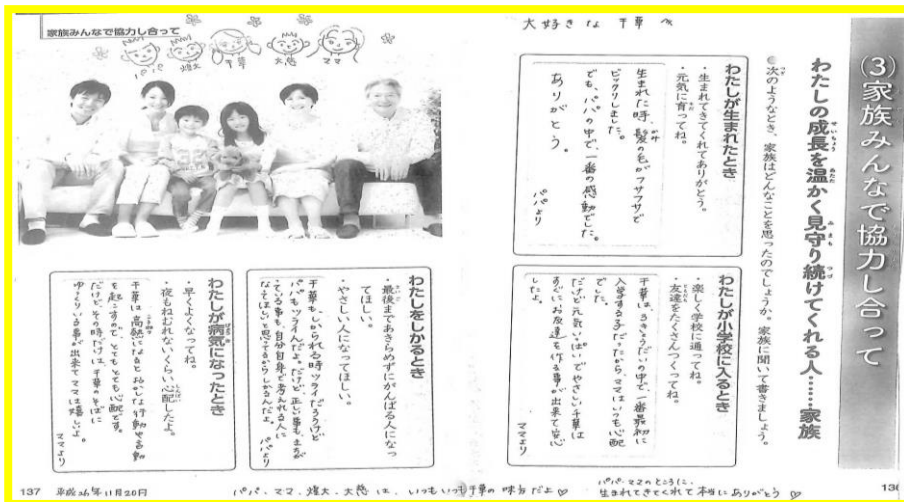 大好きな 千草へ
(3)家族みんなで協力し合って
わたしの成長を温かく見守り続けてくれる人……家族
次のようなとき、家族はどんなことを思ったのでしょうか。家族に聞いて書きましょう。
わたしが生まれたとき
・生まれてきてくれてありがとう。
・元気に育ってね。
生まれた時、髪の毛がフサフサで
ビックリしました。
でも、パパの中で一番の感動でした。
ありがとう。
パパより
わたしが小学校に入るとき
・楽しく学校に通ってね。
・友達をたくさんつくってね。
千草はきょうだいの中で一番最初に
入学する子だったから、ママはいつも心配
でした。
だけど元気いっぱいでやさしい千草は
すぐにお友達を作る事が出来て安心
したよ。
ママより
パパ・ママのところに、
生まれてきてくれて本当にありがとう♡
136
家族みんなで協力し合って
パパ
煌大
千草
大悟
ママ
わたしをしかるとき
・最後まであきらめずにがんばる人になっ
てほしい。
・やさしい人になってほしい。
千草もしかられる時ツライだろうけど
パパもツライんだよ。だけど、正しい事も、まちがっ
ている事も、自分自身で考えれる人に
なってほしいと思ってるからしかるんだよ。
パパより
わたしが病気になったとき
・早くよくなってね。
・夜もねむれないくらい心配したよ。
千草は高熱になるとおかしな行動や言動
を起こすので、とてもとても心配です。
だけど、その時だけは、千草のそばに
ゆっくりいる事が出来てママは嬉しいよ。
ママより
137
平成26年11月20日
パパ・ママ・煌大・大悟は、いつもいつも千草の味方だよ♡